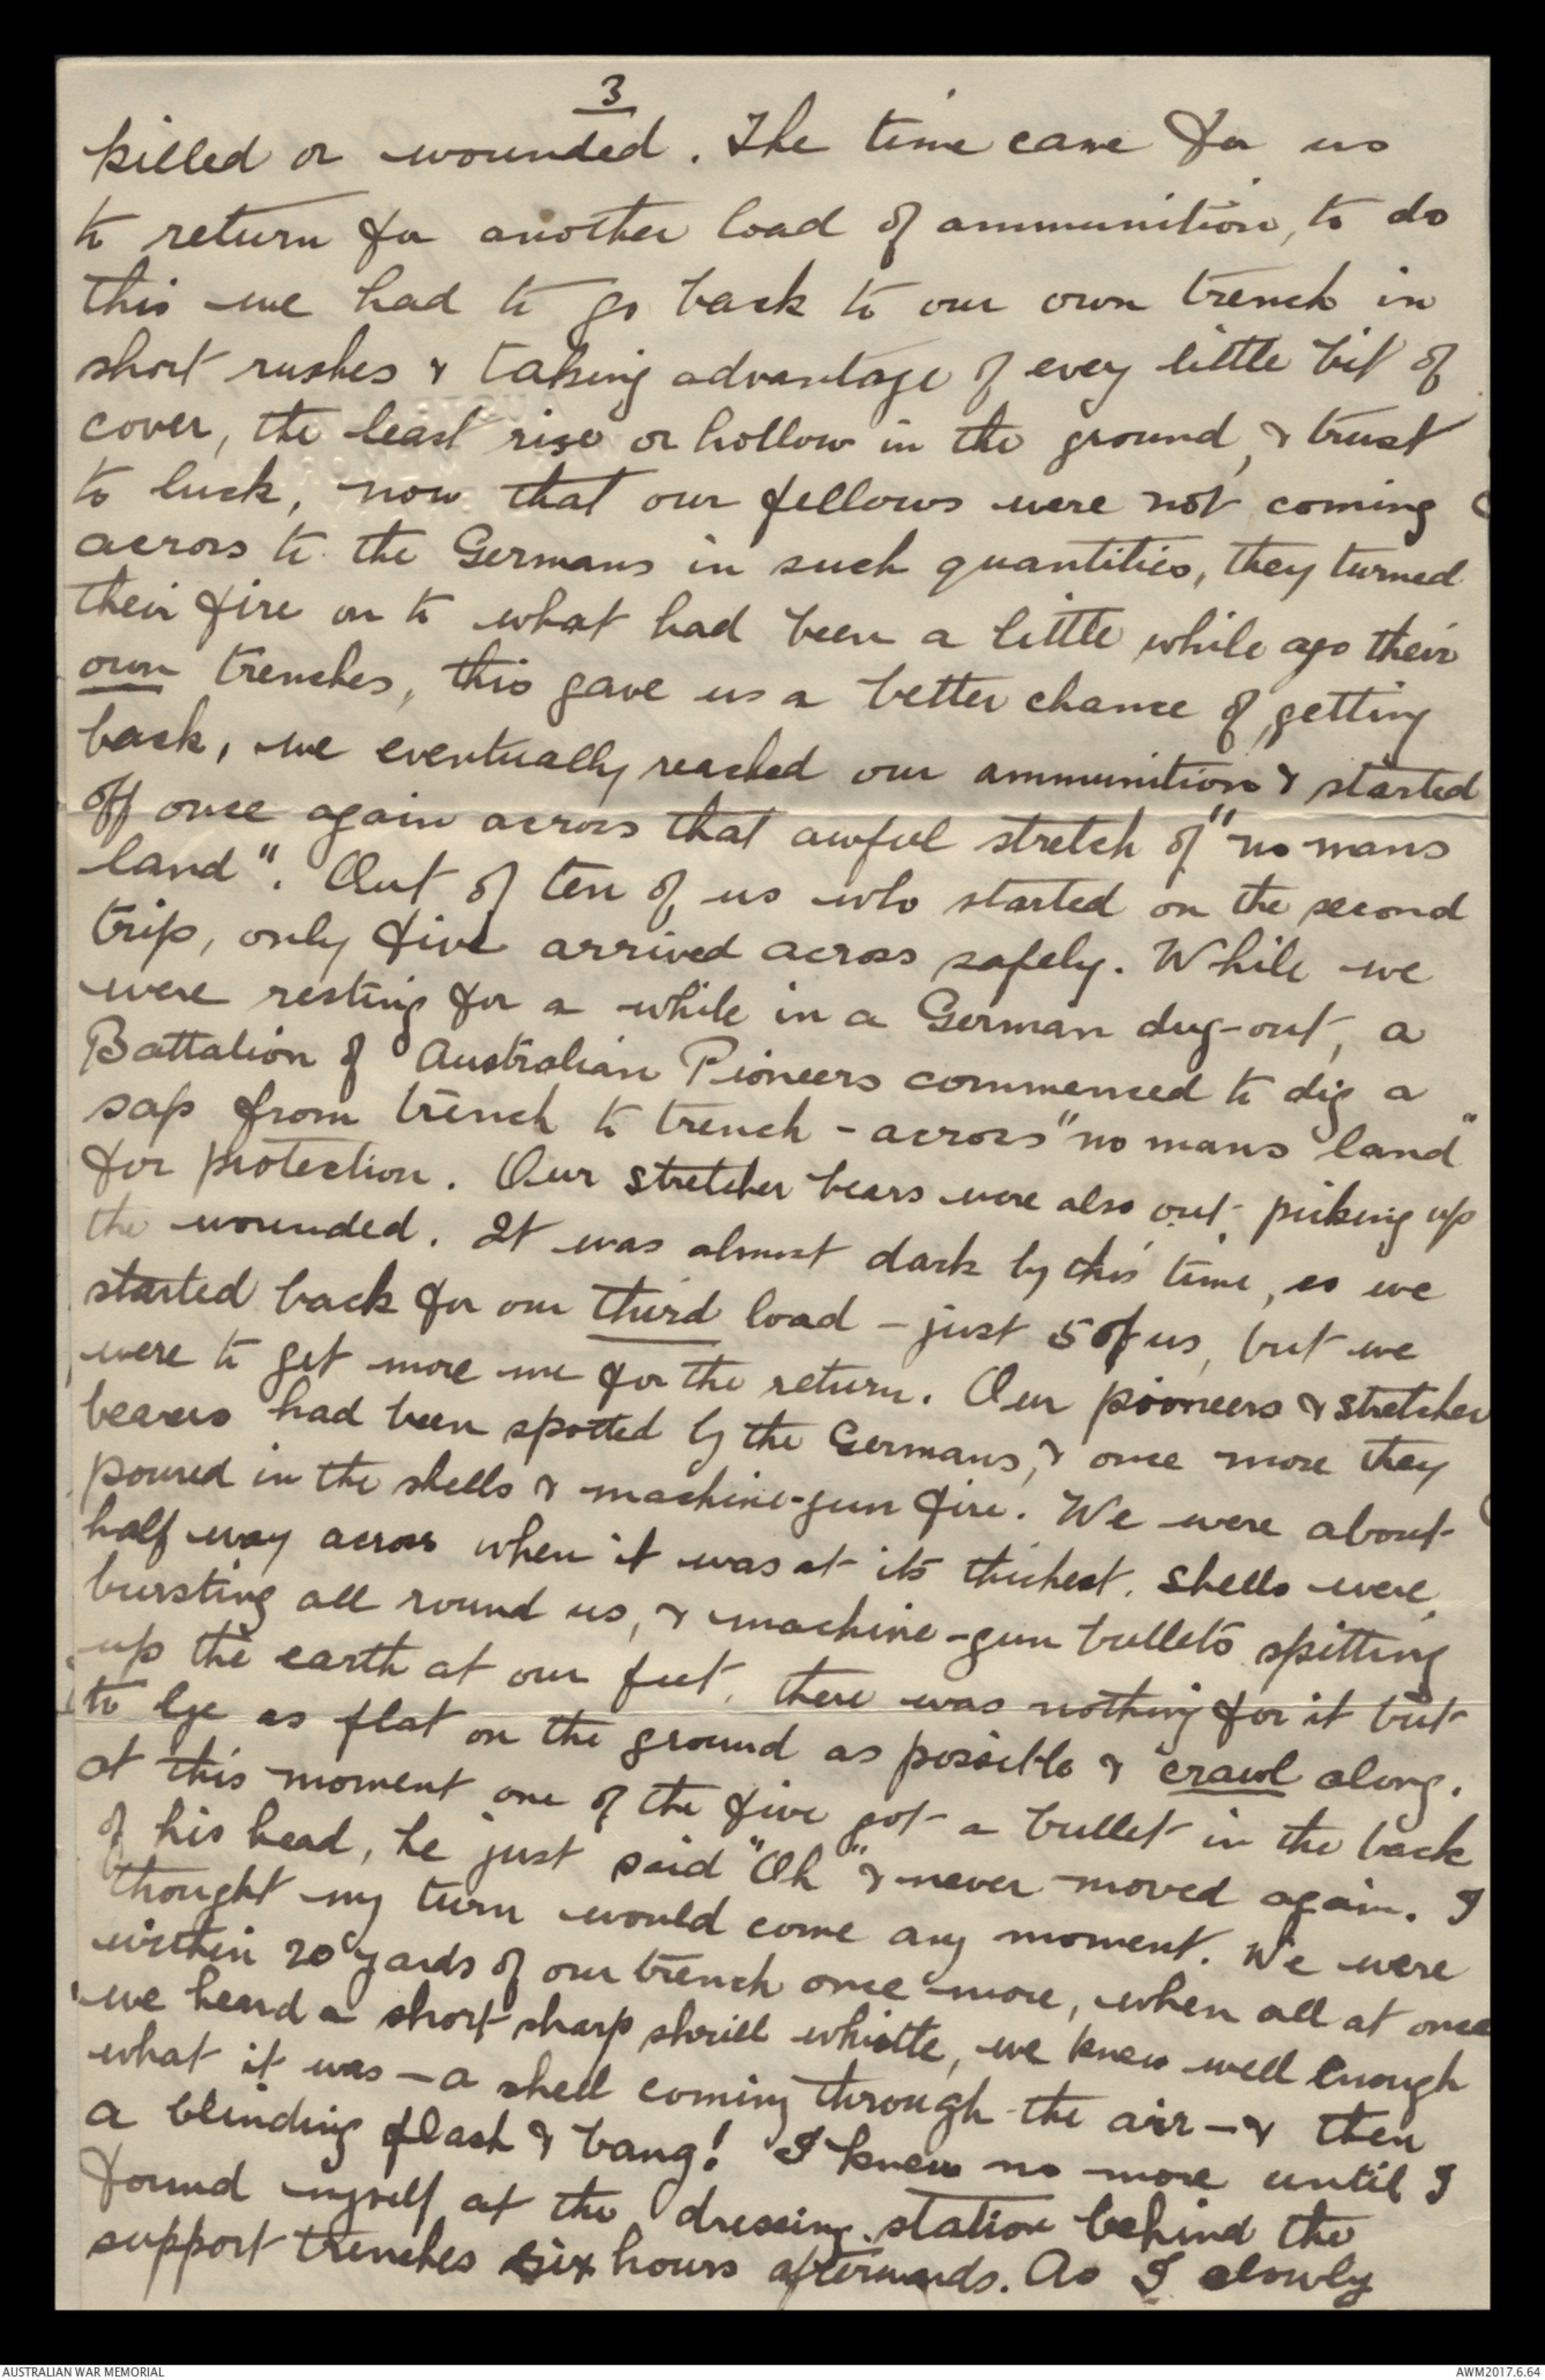 3
killed or wounded. The time came for us
to return for another load of ammunition, to do
this we had to go back to our own trench in
short rushes & taking advantage of every little bit of
cover, the least rise or hollow in the ground, & trust
to luck, now that our fellows were not coming
across to the Germans in such quantities, they turned
their fire on to what had been a little while ago their
own trenches, this gave us a better chance of getting
back, we eventually reached our ammunition & started
off once again across that awful stretch of "no mans
land". Out of ten of us who started on the second
trip, only five arrived across safely. While we
were resting for a while in a German dug-out, a
Battalion of Australian Pioneers commenced to dig a
sap from trench to trench - across "no mans land"
for protection. Our stretcher bears were also out picking up
the wounded. It was almost dark by this time, as we
started back for our third load - just 5 of us, but we
were to get more me for the return. Our pioneers & stretcher
bearers had been spotted by the Germans, & once more they
poured in the shells & machine-gun fire. We were about
half way across when it was at its thickest. Shells were
bursting all round us, & machine-gun bullets spitting
up the earth at our feet, there was nothing for it but
to lye as flat on the ground as possible & crawl along.
At this moment one of the five got a bullet in the back
of his head, he just said "Oh" & never moved again. I
thought my turn would come any moment. We were
within 20 yards of our trench once more, when all at once
we heard a short sharp shrill whistle, we knew well enough
what it was - a shell coming through the air - & then
a blinding flash & bang! I knew no more until I
found myself at the dressing station behind the
support trenches six hours afterwards. As I slowly
AUSTRALIAN WAR MEMORIAL
AWM2017.6.64